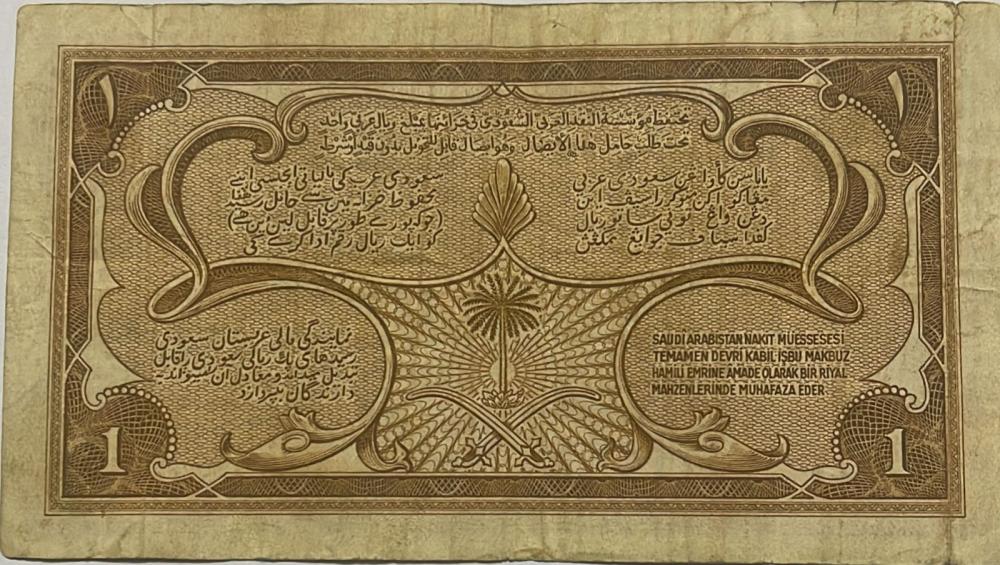 ١
١
تحتفظ مؤسسة النقد العربي السعودي في خزائنها بمبلغ ريال عربي واحد
تحت طلب حامل هذا الايصال وهو ايصال قابل للتحويل بدون قيد او شرط
سعودي عرب کی مالیاتی ایجنسی اپنے
محفوظ خزانہ میں سے حامل رسید ھذا
(جو کہ پورے طور پر قابل لین دین ھے)
کو ایک ریال رقم ادا کرے گی
سعودي عربي
ريال
نمایندگی مالی عربستان سعودی
رسیدهای یک ریالی سعودی را قابل
تبدیل میداند و معادل آن میتواند به
دارندگان بپردازد
SAUDI ARABISTAN NAKIT MÜESSESESİ
TEMAMEN DEVRİ KABİL İŞBU MAKBUZ
HAMİLİ EMRİNE AMADE OLARAK BİR RİYAL
MAHZENLERİNDE MUHAFAZA EDER
1
1